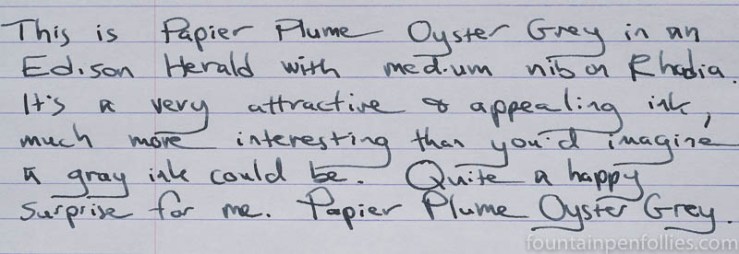 This is Papier Plume Oyster Grey in an
Edison Herald with medium nib on Rhodia.
It's a very attractive & appealing ink,
much more interesting than you'd imagine
a gray ink could be. Quite a happy
surprise for me. Papier Plume Oyster Grey.
fountainpenfollies.com